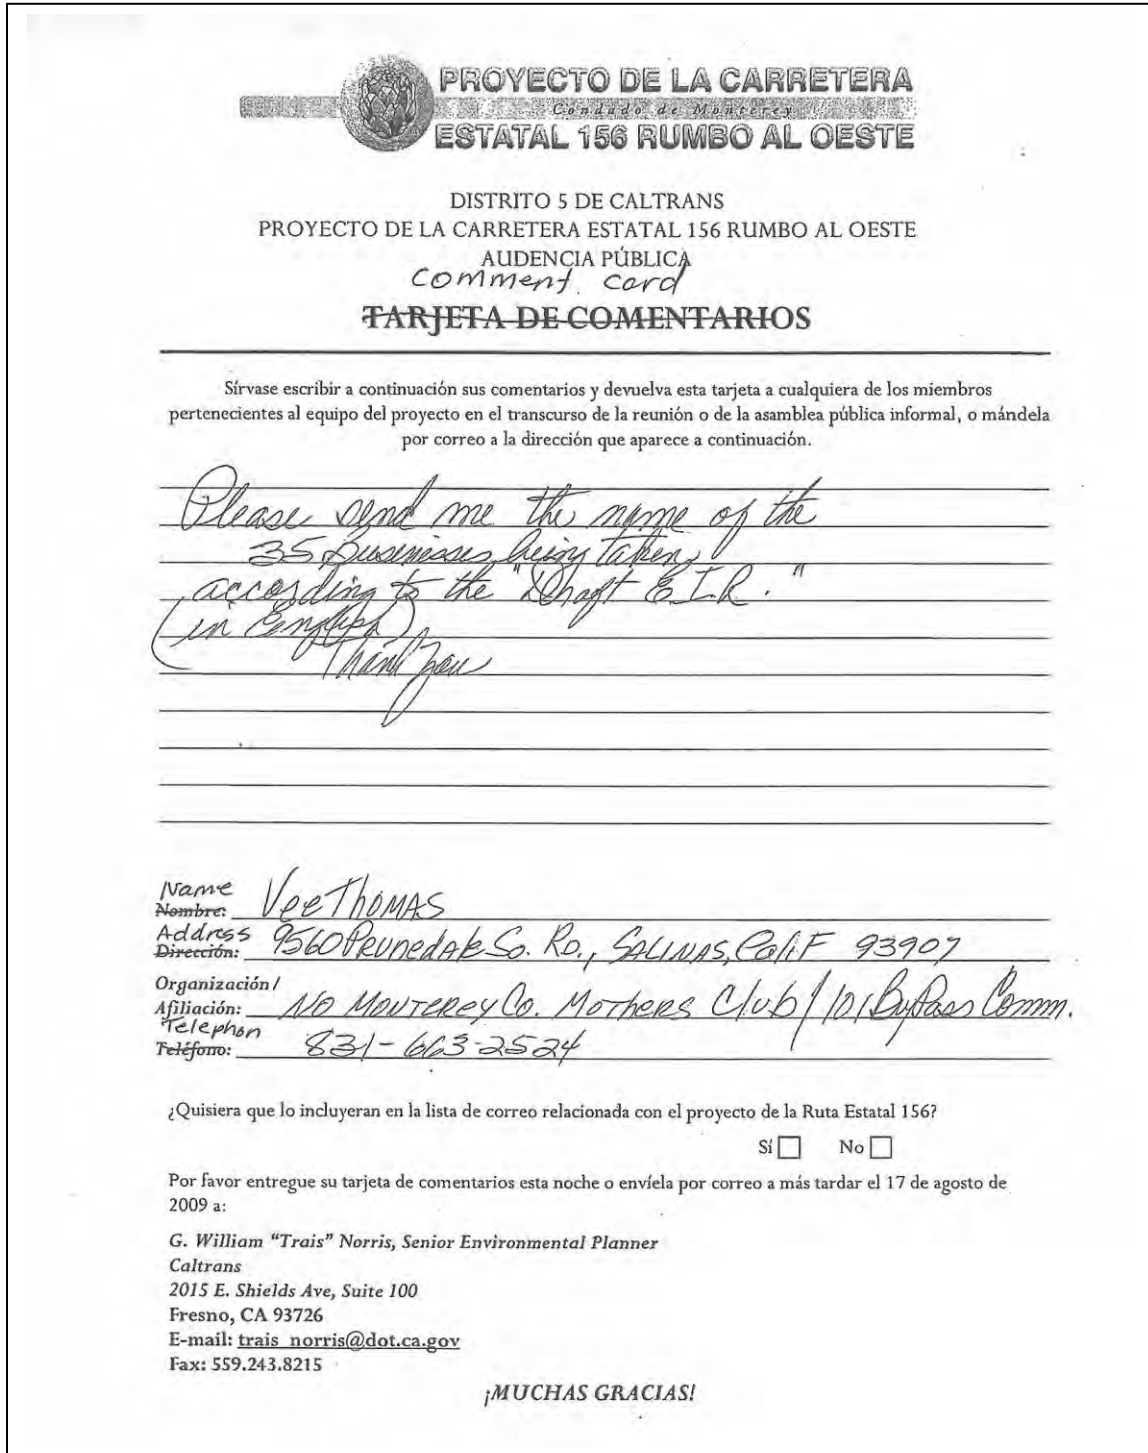 PROYECTO DE LA CARRETERA
Condado de Monterey
ESTATAL 156 RUMBO AL OESTE
DISTRITO 5 DE CALTRANS
PROYECTO DE LA CARRETERA ESTATAL 156 RUMBO AL OESTE
AUDENCIA PÚBLICA
Comment Card
TARJETA DE COMENTARIOS
Sírvase escribir a continuación sus comentarios y devuelva esta tarjeta a cualquiera de los miembros
pertenecientes al equipo del proyecto en el transcurso de la reunión o de la asamblea pública informal, o mándela
por correo a la dirección que aparece a continuación.
Please send me the name of the
35 businesses being taken,
according to the "Draft E.I.R."
(in English)
Thank You
Name
Nombre: Vee Thomas
Address
Dirección: 9560 Prunedale So. Rd., SALINAS, Calif 93907
Organización/
Afiliación: No Monterey Co. Mothers Club / 101 ByPass Comm.
Telephon
Teléfono: 831-663-2524
¿Quisiera que lo incluyeran en la lista de correo relacionada con el proyecto de la Ruta Estatal 156?
Sí No
Por favor entregue su tarjeta de comentarios esta noche o envíela por correo a más tardar el 17 de agosto de
2009 a:
G. William “Trais” Norris, Senior Environmental Planner
Caltrans
2015 E. Shields Ave, Suite 100
Fresno, CA 93726
E-mail: trais_norris@dot.ca.gov
Fax: 559.243.8215
¡MUCHAS GRACIAS!